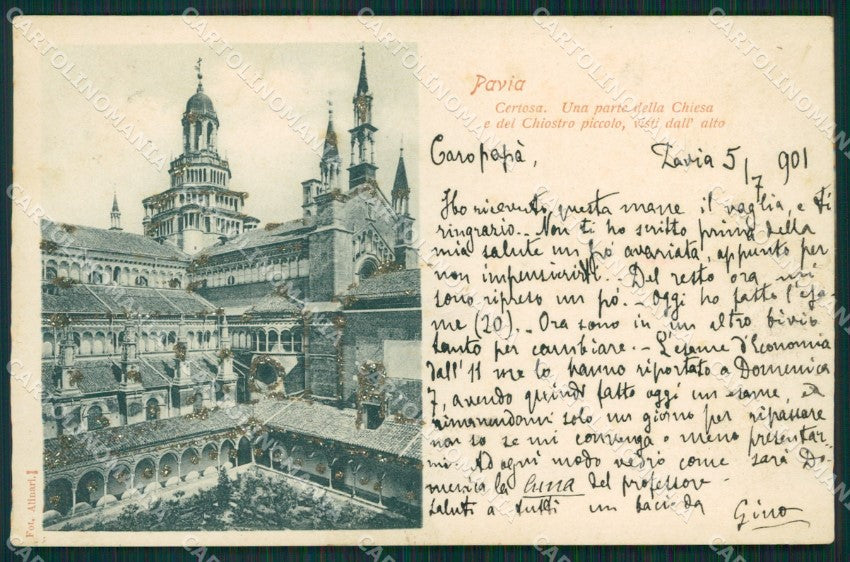 Pavia
Certosa. Una parte della Chiesa
e del Chiostro piccolo, visti dall' alto
Caro papà, Pavia 5/7 901
Ho ricevuto questa mane il vaglia, e ti
ringrazio. Non ti ho scritto prima della
mia salute un pó avariata, appunto per
non impensierirti. Del resto ora mi
sono ripreso un pó. - Oggi ho fatto l'esa-
me (20). Ora sono in un altro bivio
tanto per cambiare. - L'esame d'Economia
dall'11 me lo hanno riportato a Domenica
7, avendo quindi fatto oggi un esame, ed
rimanendomi solo un giorno per ripassare
non so se mi convenga o meno presentar-
mi. Ad ogni modo vedrò come sarà Do-
menica la luna del professore -
Saluti a tutti un baci da Gino
Fot. Alinari.
CARTOLINOMANIA